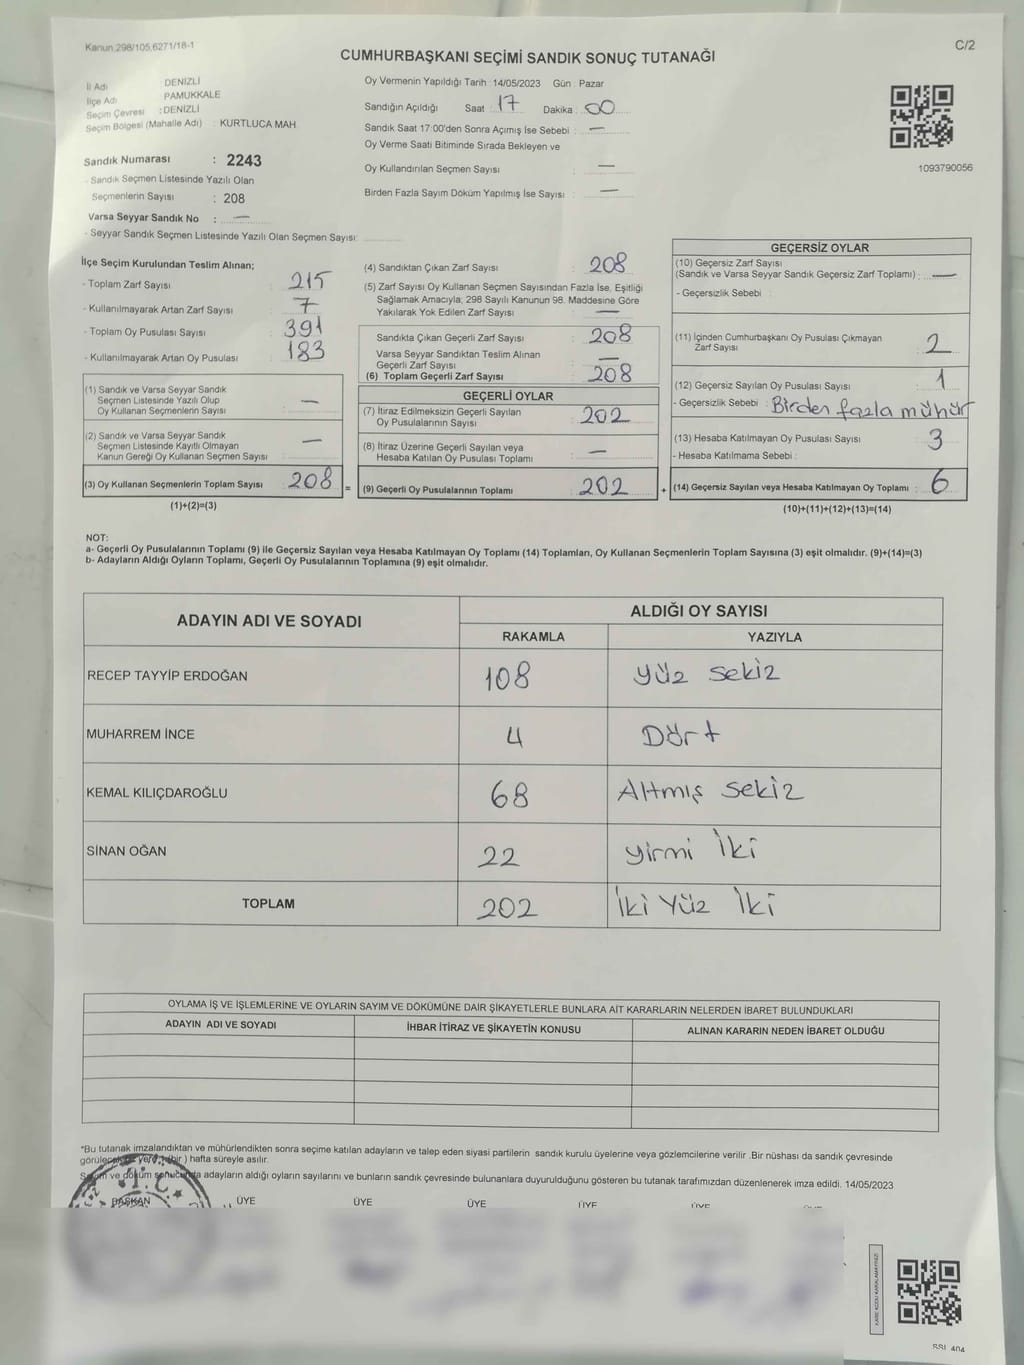 Kanun,298/105,6271/18-1
C/2
CUMHURBAŞKANI SEÇİMİ SANDIK SONUÇ TUTANAĞI
İl Adı : DENİZLİ
İlçe Adı : PAMUKKALE
Seçim Çevresi : DENİZLİ
Seçim Bölgesi (Mahalle Adı) : KURTLUCA MAH.
Sandık Numarası : 2243
- Sandık Seçmen Listesinde Yazılı Olan
Seçmenlerin Sayısı : 208
Varsa Seyyar Sandık No : —
- Seyyar Sandık Seçmen Listesinde Yazılı Olan Seçmen Sayısı:
Oy Vermenin Yapıldığı Tarih : 14/05/2023 Gün : Pazar
Sandığın Açıldığı Saat : 17 Dakika : 00
Sandık Saat 17:00'den Sonra Açımış İse Sebebi : —
Oy Verme Saati Bitiminde Sırada Bekleyen ve
Oy Kullandırılan Seçmen Sayısı : —
Birden Fazla Sayım Döküm Yapılmış İse Sayısı : —
1093790056
İlçe Seçim Kurulundan Teslim Alınan;
- Toplam Zarf Sayısı : 215
- Kullanılmayarak Artan Zarf Sayısı : 7
- Toplam Oy Pusulası Sayısı : 391
- Kullanılmayarak Artan Oy Pusulası : 183
(1) Sandık ve Varsa Seyyar Sandık
Seçmen Listesinde Yazılı Olup
Oy Kullanan Seçmenlerin Sayısı : —
(2) Sandık ve Varsa Seyyar Sandık
Seçmen Listesinde Kayıtlı Olmayan
Kanun Gereği Oy Kullanan Seçmen Sayısı : —
(3) Oy Kullanan Seçmenlerin Toplam Sayısı : 208
(1)+(2)=(3)
(4) Sandıktan Çıkan Zarf Sayısı : 208
(5) Zarf Sayısı Oy Kullanan Seçmen Sayısından Fazla İse, Eşitliği
Sağlamak Amacıyla; 298 Sayılı Kanunun 98. Maddesine Göre
Yakılarak Yok Edilen Zarf Sayısı : —
Sandıkta Çıkan Geçerli Zarf Sayısı : 208
Varsa Seyyar Sandıktan Teslim Alınan
Geçerli Zarf Sayısı : —
(6) Toplam Geçerli Zarf Sayısı : 208
GEÇERLİ OYLAR
(7) İtiraz Edilmeksizin Geçerli Sayılan
Oy Pusulalarının Sayısı : 202
(8) İtiraz Üzerine Geçerli Sayılan veya
Hesaba Katılan Oy Pusulası Toplamı : —
= (9) Geçerli Oy Pusulalarının Toplamı : 202
GEÇERSİZ OYLAR
(10) Geçersiz Zarf Sayısı
(Sandık ve Varsa Seyyar Sandık Geçersiz Zarf Toplamı) : —
- Geçersizlik Sebebi :
(11) İçinden Cumhurbaşkanı Oy Pusulası Çıkmayan
Zarf Sayısı : 2
(12) Geçersiz Sayılan Oy Pusulası Sayısı : 1
- Geçersizlik Sebebi : Birden fazla mühür
(13) Hesaba Katılmayan Oy Pusulası Sayısı : 3
- Hesaba Katılmama Sebebi :
+ (14) Geçersiz Sayılan veya Hesaba Katılmayan Oy Toplamı : 6
(10)+(11)+(12)+(13)=(14)
NOT:
a- Geçerli Oy Pusulalarının Toplamı (9) ile Geçersiz Sayılan veya Hesaba Katılmayan Oy Toplamı (14) Toplamları, Oy Kullanan Seçmenlerin Toplam Sayısına (3) eşit olmalıdır. (9)+(14)=(3)
b- Adayların Aldığı Oyların Toplamı, Geçerli Oy Pusulalarının Toplamına (9) eşit olmalıdır.
ADAYIN ADI VE SOYADI
ALDIĞI OY SAYISI
RAKAMLA YAZIYLA
RECEP TAYYİP ERDOĞAN 108 Yüz sekiz
MUHARREM İNCE 4 Dört
KEMAL KILIÇDAROĞLU 68 Altmış sekiz
SİNAN OĞAN 22 yirmi iki
TOPLAM 202 iki Yüz iki
OYLAMA İŞ VE İŞLEMLERİNE VE OYLARIN SAYIM VE DÖKÜMÜNE DAİR ŞİKAYETLERLE BUNLARA AİT KARARLARIN NELERDEN İBARET BULUNDUKLARI
ADAYIN ADI VE SOYADI İHBAR İTİRAZ VE ŞİKAYETİN KONUSU ALINAN KARARIN NEDEN İBARET OLDUĞU
*Bu tutanak imzalandıktan ve mühürlendikten sonra seçime katılan adayların ve talep eden siyasi partilerin sandık kurulu üyelerine veya gözlemcilerine verilir .Bir nüshası da sandık çevresinde
hafta süreyle asılır.
ve döküm sonucunda adayların aldığı oyların sayılarını ve bunların sandık çevresinde bulunanlara duyurulduğunu gösteren bu tutanak tarafımızdan düzenlenerek imza edildi. 14/05/2023
T.C.
BAŞKAN ÜYE ÜYE ÜYE ÜYE ÜYE